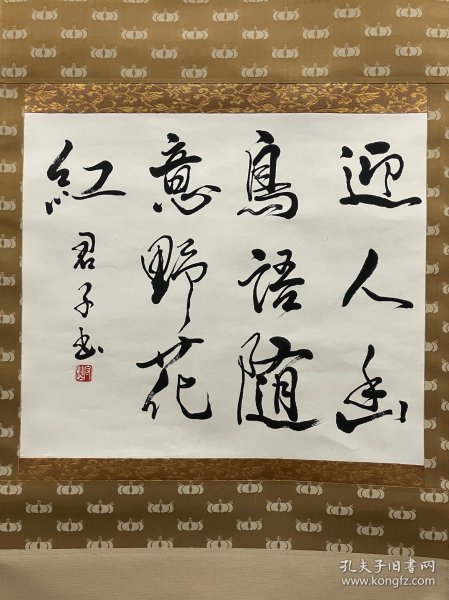 迎人幽
鳥語随
意野花
紅
君子书
孔夫子旧书网
www.kongfz.com